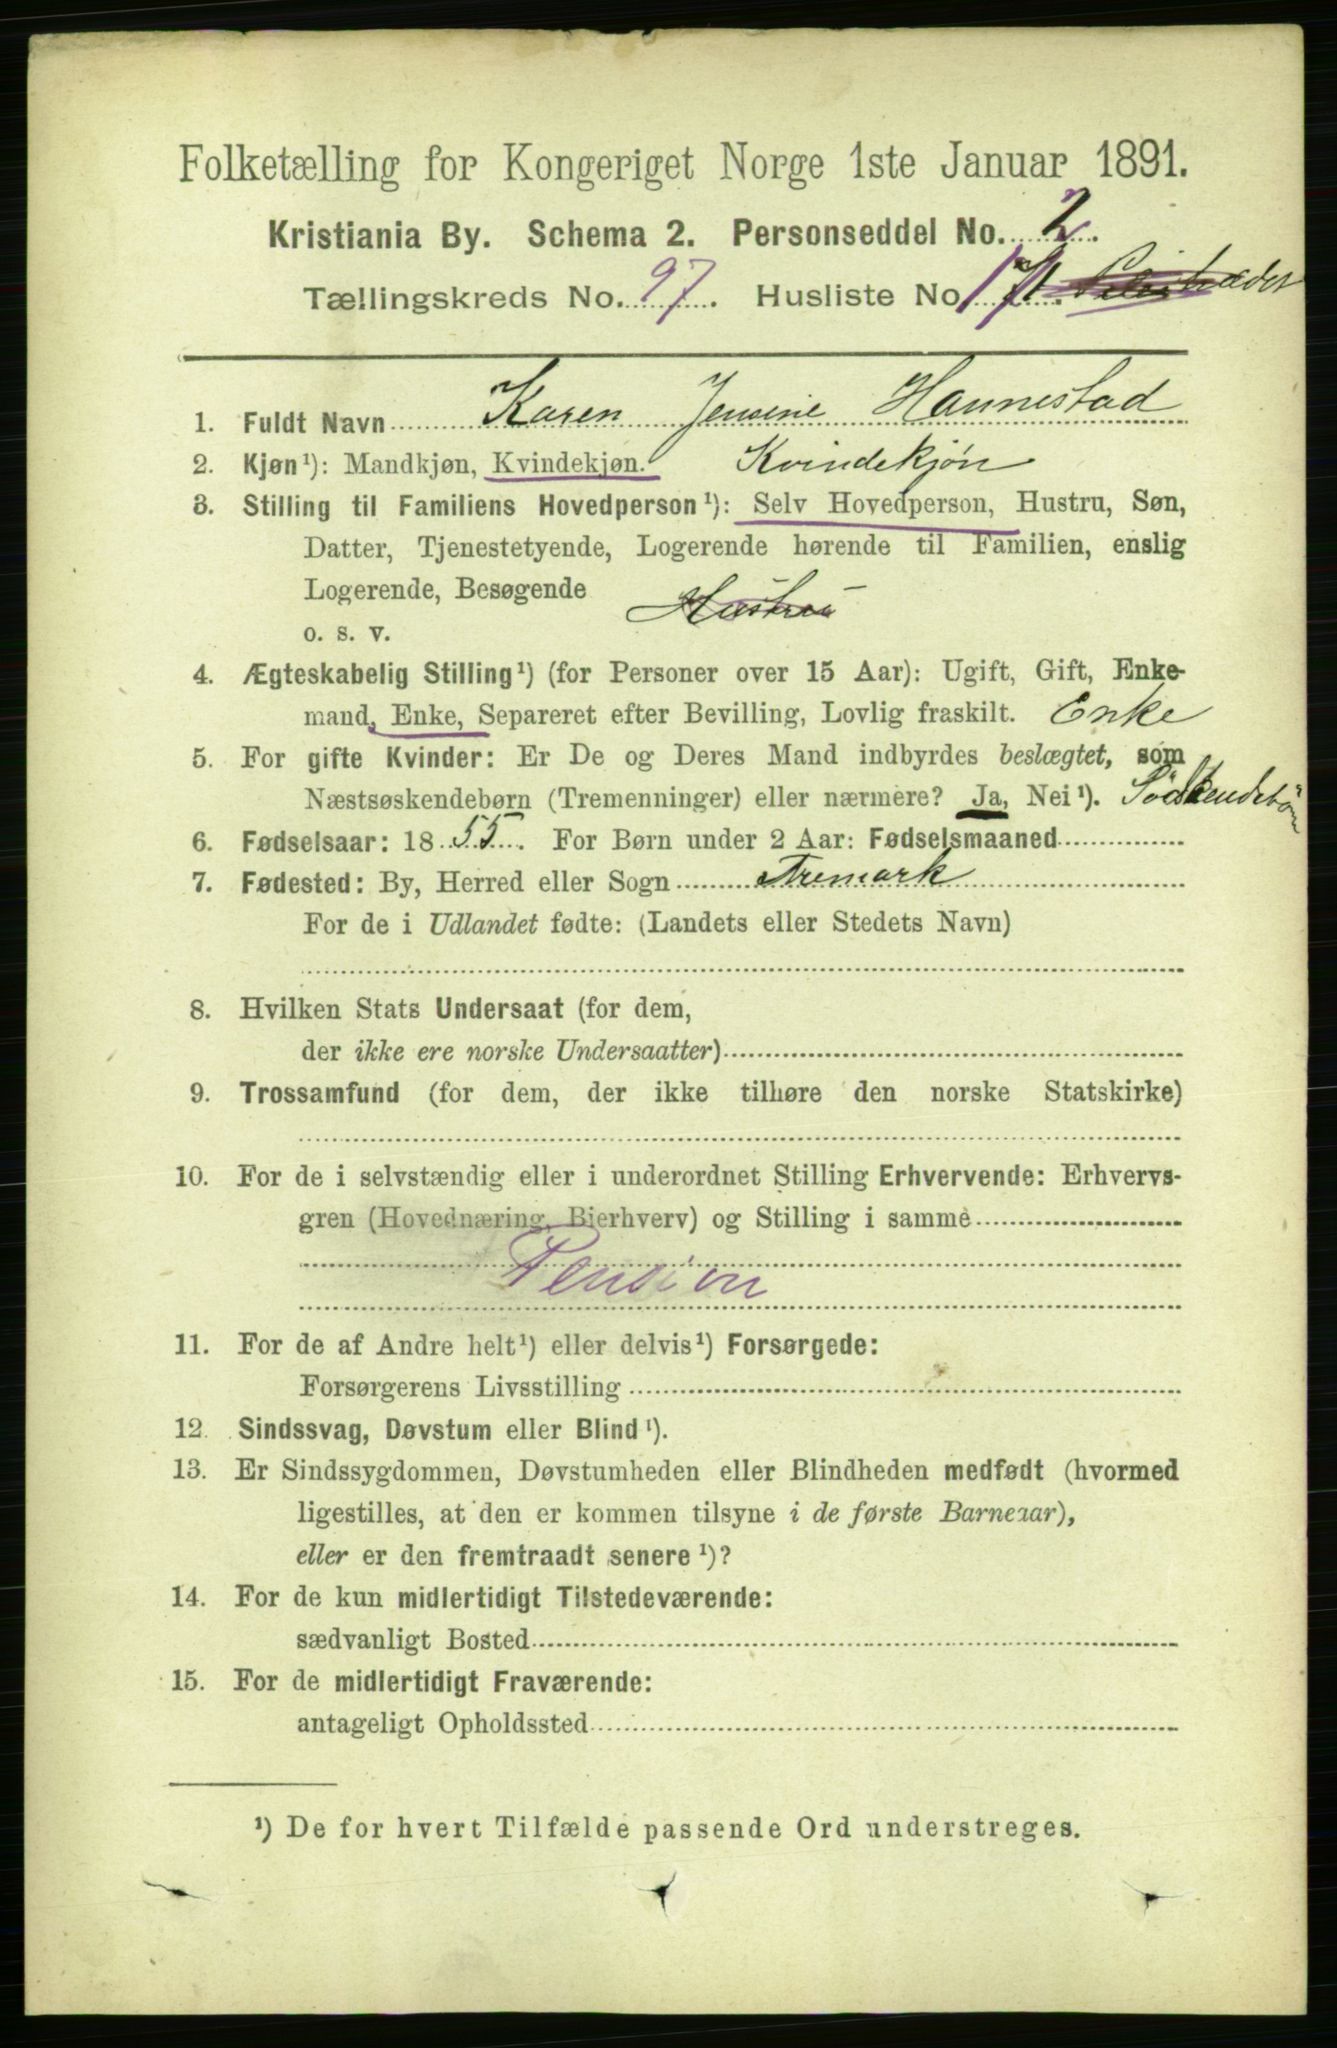 Folketælling for Kongeriget Norge 1ste Januar 1891.
Kristiania By. Schema 2. Personseddel No. 2.
Tællingskreds No. 97. Husliste No 17.
1. Fuldt Navn Karen Jensine Hannestad
2. Kjøn¹): Mandkjøn, Kvindekjøn. Kvindekjön
3. Stilling til Familiens Hovedperson¹): Selv Hovedperson, Hustru, Søn,
Datter, Tjenestetyende, Logerende hørende til Familien, enslig
Logerende, Besøgende
o. s. v. Hustru
4. Ægteskabelig Stilling¹) (for Personer over 15 Aar): Ugift, Gift, Enke-
mand, Enke, Separeret efter Bevilling, Lovlig fraskilt. Enke
5. For gifte Kvinder: Er De og Deres Mand indbyrdes beslægtet, som
Næstsøskendebørn (Tremenninger) eller nærmere? Ja, Nei¹). Södskendebörn
6. Fødselsaar: 1855. For Børn under 2 Aar: Fødselsmaaned
7. Fødested: By, Herred eller Sogn Aremark
For de i Udlandet fødte: (Landets eller Stedets Navn)
8. Hvilken Stats Undersaat (for dem,
der ikke ere norske Undersaatter)
9. Trossamfund (for dem, der ikke tilhøre den norske Statskirke)
10. For de i selvstændig eller i underordnet Stilling Erhvervende: Erhvervs-
gren (Hovednæring, Bierhverv) og Stilling i samme
Pension
11. For de af Andre helt¹) eller delvis¹) Forsørgede:
Forsørgerens Livsstilling
12. Sindssvag, Døvstum eller Blind¹).
13. Er Sindssygdommen, Døvstumheden eller Blindheden medfødt (hvormed
ligestilles, at den er kommen tilsyne i de første Barneaar),
eller er den fremtraadt senere¹)?
14. For de kun midlertidigt Tilstedeværende:
sædvanligt Bosted
15. For de midlertidigt Fraværende:
antageligt Opholdssted
¹) De for hvert Tilfælde passende Ord understreges.